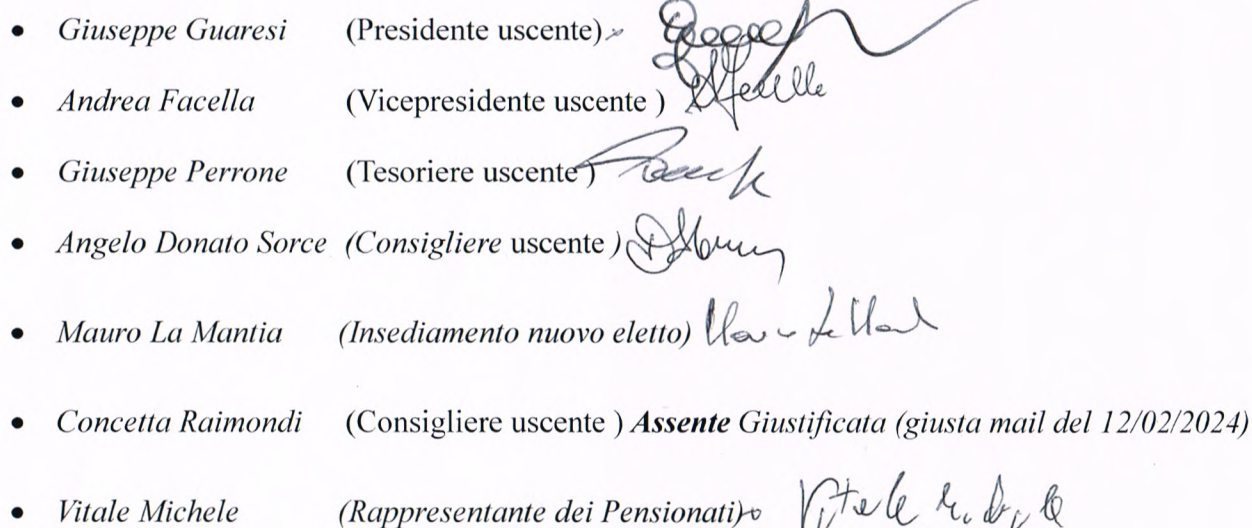 • Giuseppe Guaresi (Presidente uscente)
• Andrea Facella (Vicepresidente uscente )
• Giuseppe Perrone (Tesoriere uscente )
• Angelo Donato Sorce (Consigliere uscente )
• Mauro La Mantia (Insediamento nuovo eletto)
• Concetta Raimondi (Consigliere uscente ) Assente Giustificata (giusta mail del 12/02/2024)
• Vitale Michele (Rappresentante dei Pensionati)